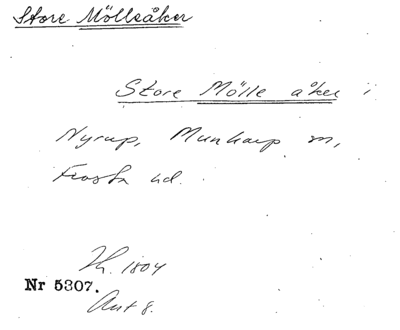 Store Möllsåker
Store Mölle åker i
Nyrup, Munkarp sn,
Frosta hd.
Th. 1804
Nr 5307.
Akt 8.